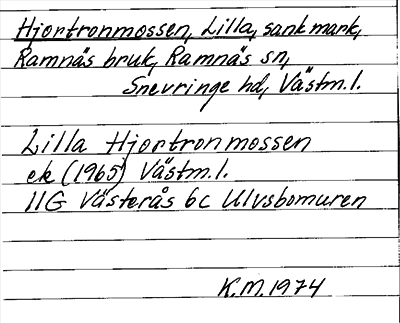 Hjortronmossen, Lilla, sank mark,
Ramnäs bruk, Ramnäs sn,
Snevringe hd, Västm.l.
Lilla Hjortronmossen
ek (1965) Västm.l.
11G Västerås 6c Ulvsbomuren
K.M. 1974